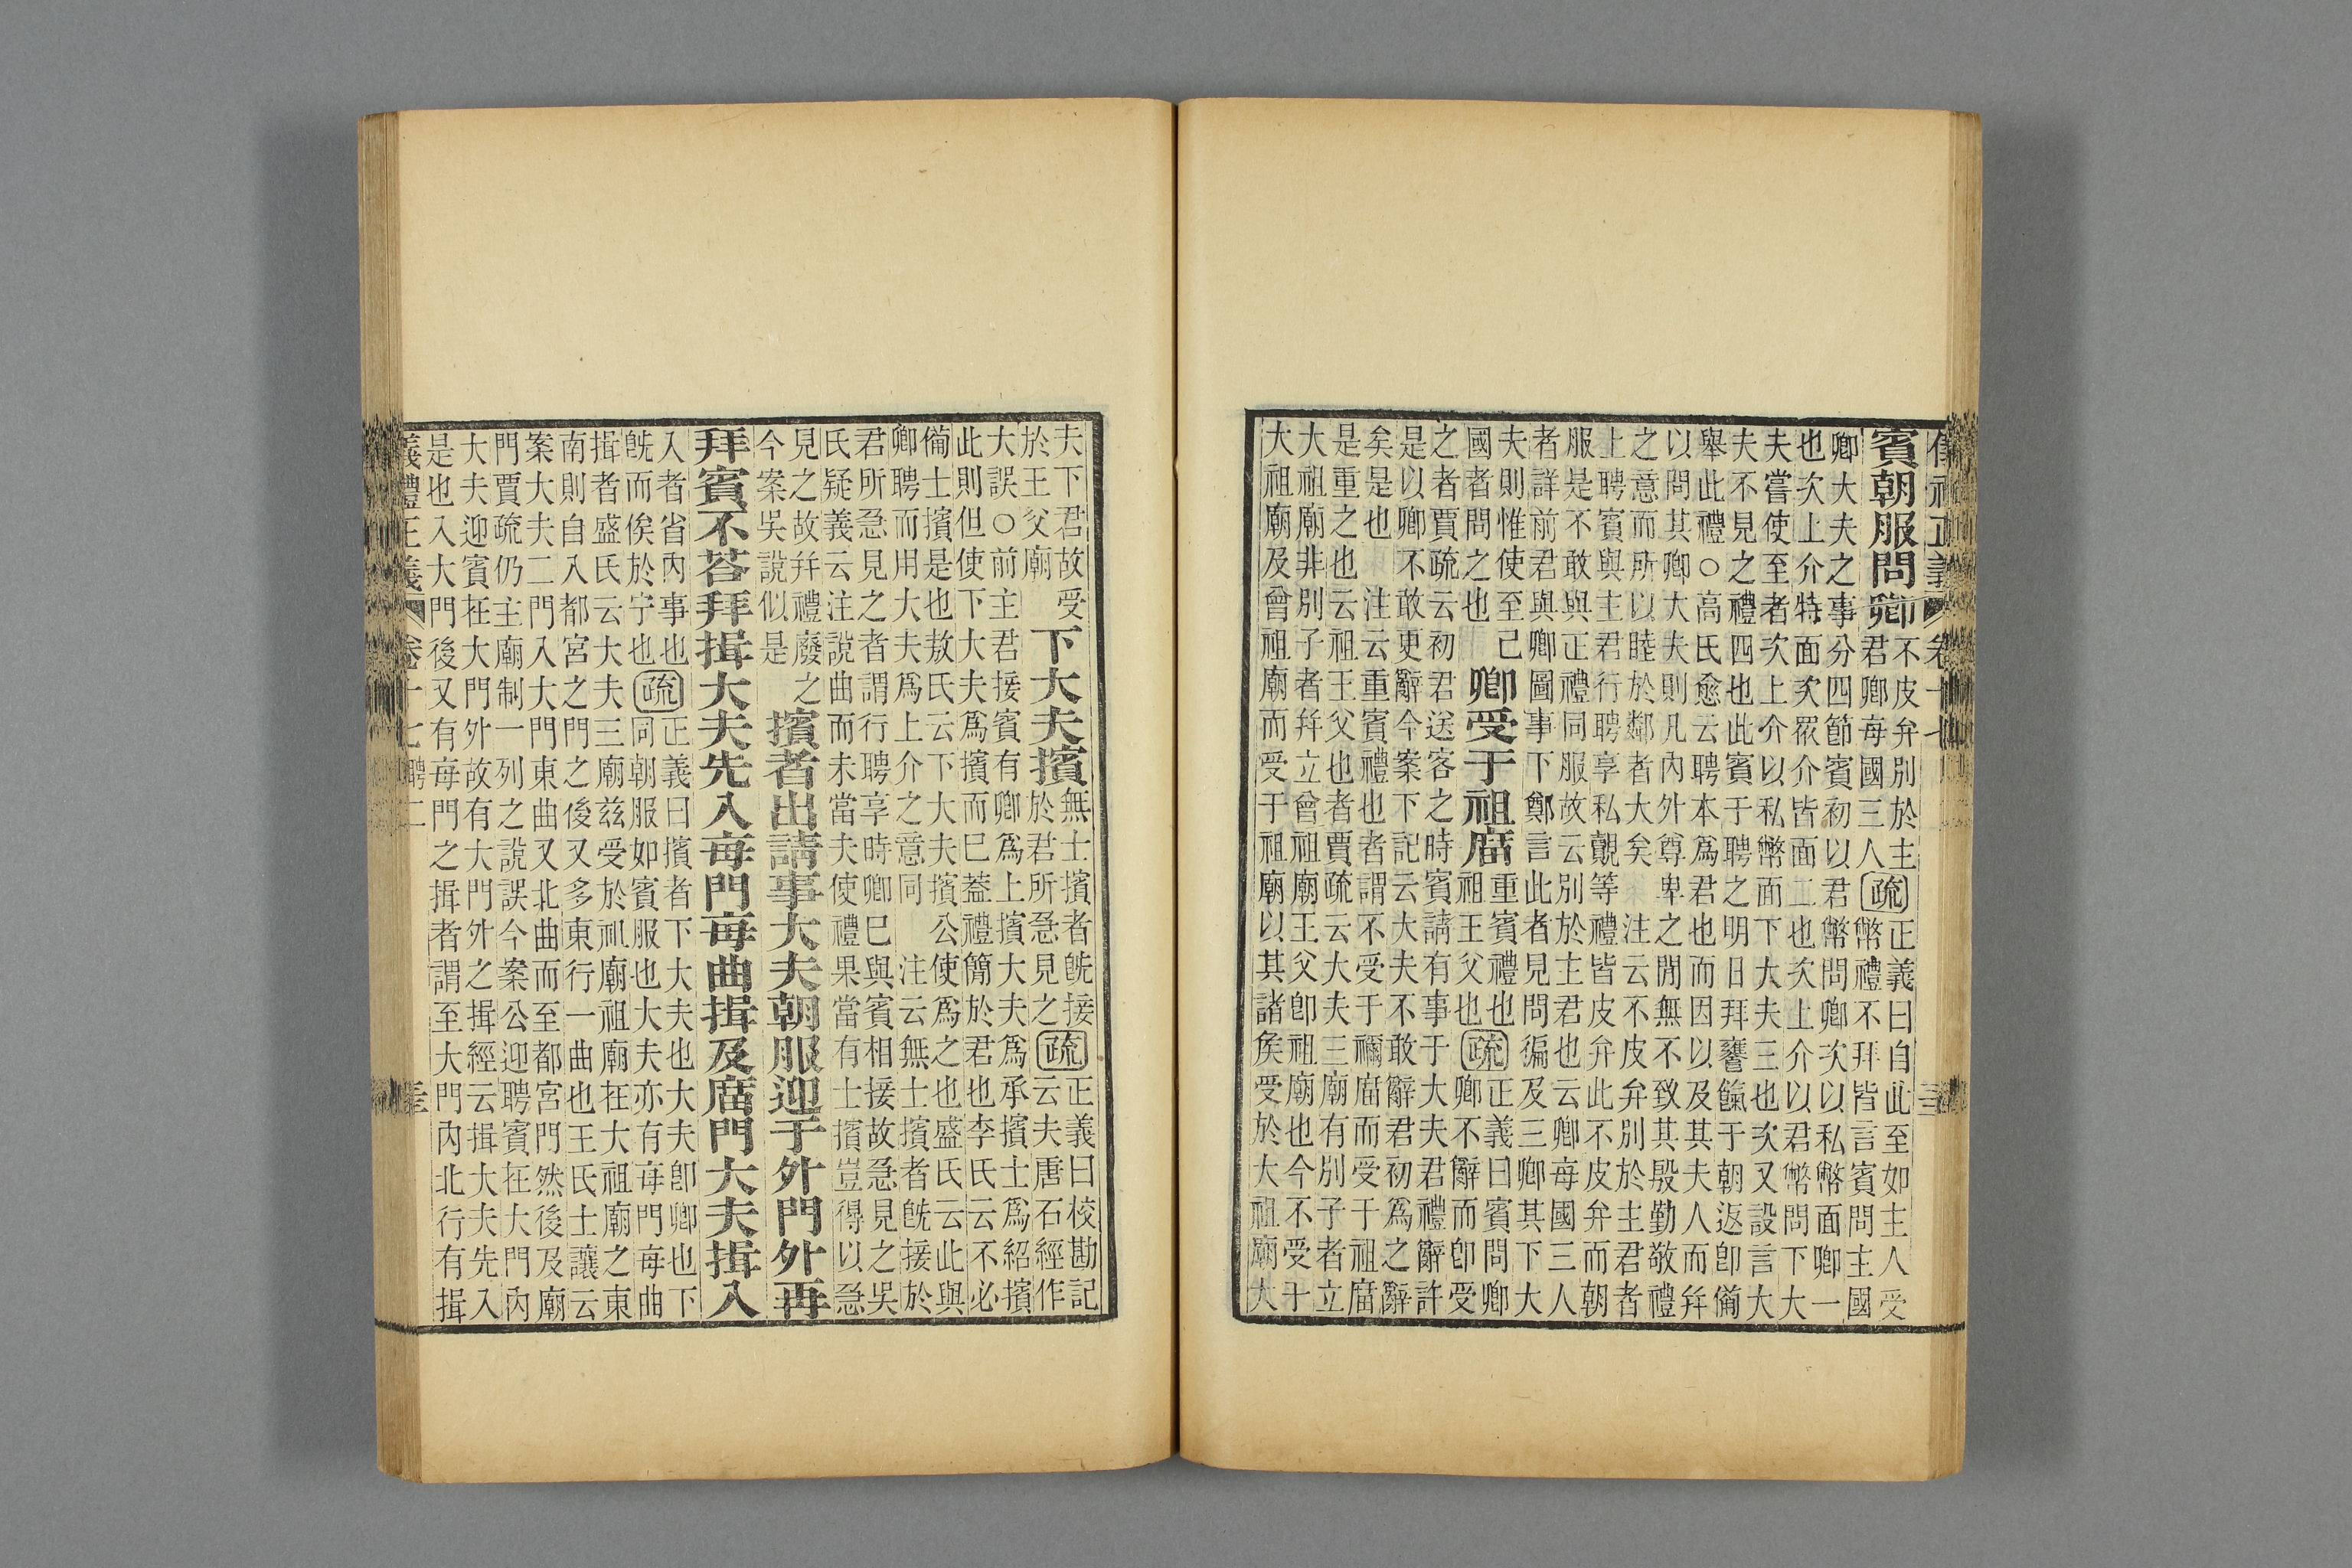 儀禮正義 卷十七
賓朝服問卿
不皮弁別於主
君卿每國三人
疏
正義曰自此至如主人受
幣禮不拜皆言賓問主國
卿大夫之事分四節賓初以君幣問卿次以私幣面卿一
也次上介特面次眾介皆面二也次上介以君幣問下大
夫嘗使至者次上介以私幣面下大夫三也次又設言大
夫不見之禮四也此賓于聘之明日拜饔餼于朝返卽備
舉此禮○高氏愈云聘本爲君也而因以及其夫人而幷
以問其卿大夫則凡內外尊卑之閒無不致其殷勤敬禮
之意而所以睦於鄰者大矣 注云不皮弁別於主君者
上聘賓與主君行聘享私覿等禮皆皮弁此不皮弁而朝
服是不敢與正禮同服故云別於主君也云卿每國三人
者詳前君與卿圖事下鄭言此者見問徧及三卿其下大
夫則惟使至己
國者問之也
卿受于祖庿
重賓禮也
祖王父也
疏
正義曰賓問卿
卿不辭而卽受
之者賈疏云初君送客之時賓請有事于大夫君禮辭許
是以卿不敢更辭今案下記云大夫不敢辭君初爲之辭
矣是也 注云重賓禮也者謂不受于禰庿而受于祖庿
是重之也云祖王父也者賈疏云大夫三廟有別子者立
大祖廟非別子者幷立曾祖廟王父卽祖廟也今不受于
大祖廟及曾祖廟而受于祖廟以其諸矦受於大祖廟大
夫下君故受
於王父廟
下大夫擯
無士擯者旣接
於君所急見之
疏
正義曰校勘記
云夫唐石經作
大誤○前主君接賓有卿爲上擯大夫爲承擯士爲紹擯
此則但使下大夫爲擯而已蓋禮簡於君也李氏云不必
備士擯是也敖氏云下大夫擯公使爲之也盛氏云此與
卿聘而用大夫爲上介之意同 注云無士擯者旣接於
君所急見之者謂行聘享時卿已與賓相接故急見之吳
氏疑義云注說曲而未當夫使禮果當有士擯豈得以急
見之故幷禮廢之
今案吳說似是
擯者出請事大夫朝服迎于外門外再
拜賓不荅拜揖大夫先入每門每曲揖及庿門大夫揖入
入者省內事也
旣而俟於宁也
疏
正義曰擯者下大夫也大夫卽卿也下
同朝服如賓服也大夫亦有每門每曲
揖者盛氏云大夫三廟茲受於廟祖廟在大祖廟之東
南則自入都宮之門之後又多東行一曲也王氏士讓云
案大夫二門入大門東曲又北曲而至都宮門然後及廟
門賈疏仍主廟制一列之說誤今案公迎聘賓在大門內
大夫迎賓在大門外故有大門外之揖經云揖大夫先入
是也入大門後又有每門之揖者謂至大門內北行有揖
義禮正義 卷十七 聘二